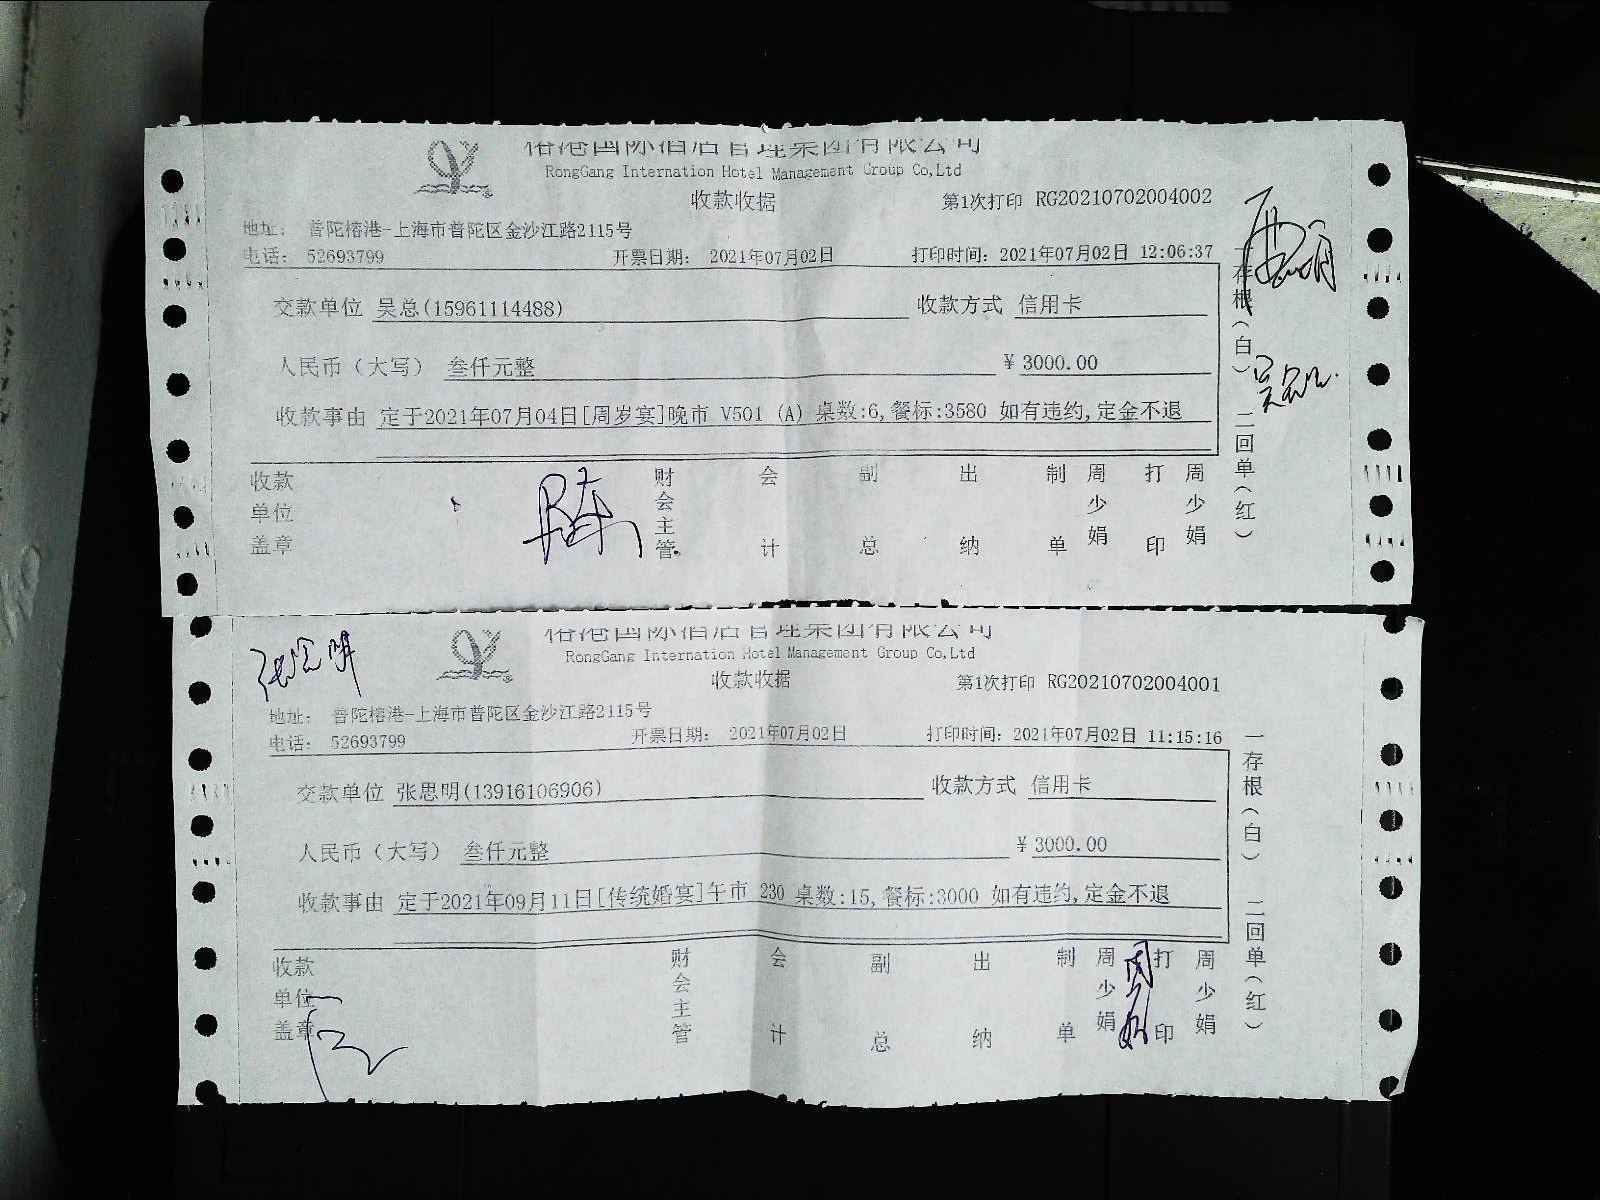 榕港国际酒店管理集团有限公司
RongGang Internation Hotel Management Group Co,Ltd
收款收据 第1次打印 RG20210702004002
地址: 普陀榕港-上海市普陀区金沙江路2115号
电话: 52693799 开票日期: 2021年07月02日 打印时间: 2021年07月02日 12:06:37
交款单位 吴总(15961114488) 收款方式 信用卡
人民币(大写) 叁仟元整 ¥3000.00
收款事由 定于2021年07月04日[周岁宴]晚市 V501 (A) 桌数:6,餐标:3580 如有违约,定金不退
收款单位盖章 财会主管 会计 副总 出纳 制单 周少娟 打印 周少娟
一存根(白) 二回单(红)
张思明
榕港国际酒店管理集团有限公司
RongGang Internation Hotel Management Group Co,Ltd
收款收据 第1次打印 RG20210702004001
地址: 普陀榕港-上海市普陀区金沙江路2115号
电话: 52693799 开票日期: 2021年07月02日 打印时间: 2021年07月02日 11:15:16
交款单位 张思明(13916106906) 收款方式 信用卡
人民币(大写) 叁仟元整 ¥3000.00
收款事由 定于2021年09月11日[传统婚宴]午市 230 桌数:15,餐标:3000 如有违约,定金不退
收款单位盖章 财会主管 会计 副总 出纳 制单 周少娟 打印 周少娟
一存根(白) 二回单(红)